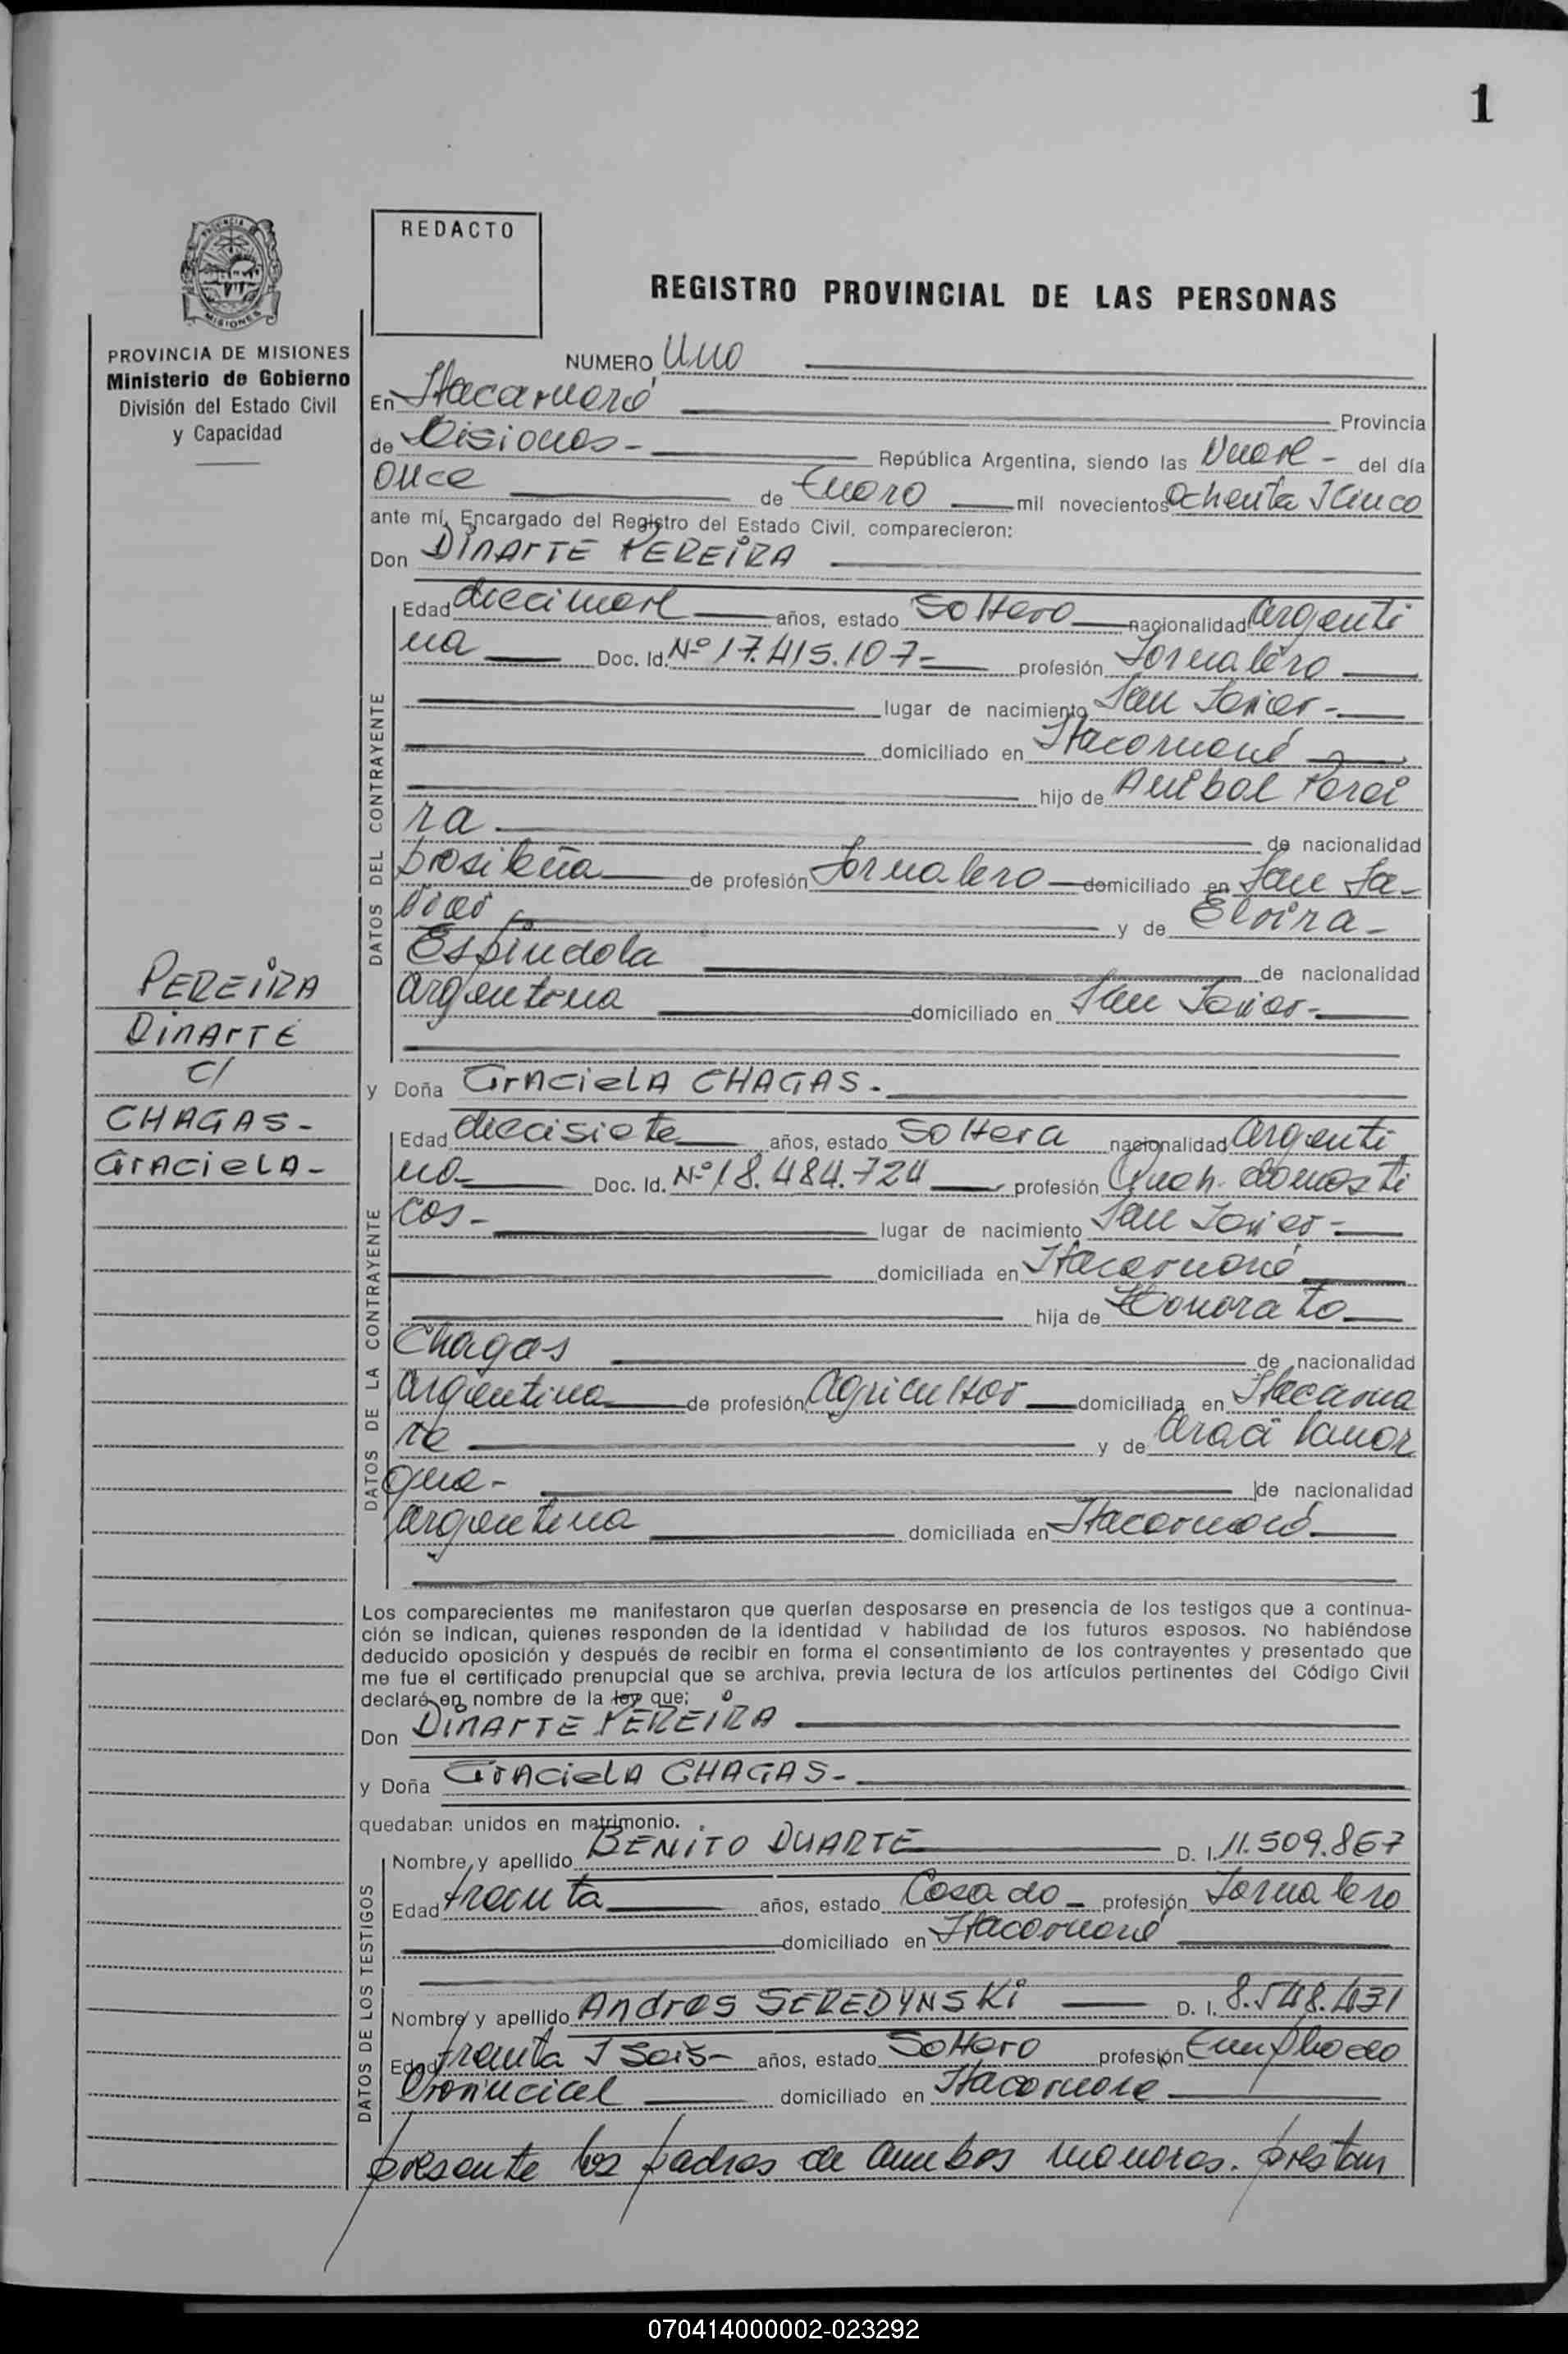 1
REDACTO
REGISTRO PROVINCIAL DE LAS PERSONAS
PROVINCIA DE MISIONES
Ministerio de Gobierno
División del Estado Civil
y Capacidad
NUMERO Uno
En Itacaruaré Provincia
de Misiones - República Argentina, siendo las Nueve - del día
Once de Enero mil novecientos Ochenta Y Cinco
ante mí, Encargado del Registro del Estado Civil, comparecieron:
Don DINARTE PEREIRA
DATOS DEL CONTRAYENTE
Edad diecinueve años, estado Soltero nacionalidad Argenti
na Doc. Id. Nº 17.415.107- profesión Jornalero
lugar de nacimiento San Javier-
domiciliado en Itacaruaré
hijo de Anibal Perei
ra de nacionalidad
brasileña de profesión Jornalero domiciliado en San Ja-
vier y de Elvira-
Espíndola de nacionalidad
argentina domiciliado en San Javier-
PEREIRA
DINARTE
C/
CHAGAS-
GRACIELA-
y Doña GRACIELA CHAGAS.
DATOS DE LA CONTRAYENTE
Edad diecisiete años, estado Soltera nacionalidad Argenti
na Doc. Id. Nº 18.484.724 profesión Queh. domesti
cos- lugar de nacimiento San Javier-
domiciliada en Itacaruaré
hija de Honorato
Chagas de nacionalidad
argentina de profesión Agricultor domiciliada en Itacarua
ré y de
de nacionalidad
argentina domiciliada en Itacaruaré
Los comparecientes me manifestaron que querían desposarse en presencia de los testigos que a continua-
ción se indican, quienes responden de la identidad y habilidad de los futuros esposos. No habiéndose
deducido oposición y después de recibir en forma el consentimiento de los contrayentes y presentado que
me fue el certificado prenupcial que se archiva, previa lectura de los artículos pertinentes del Código Civil
declaré en nombre de la ley que:
Don DINARTE PEREIRA
y Doña GRACIELA CHAGAS-
quedaban unidos en matrimonio.
DATOS DE LOS TESTIGOS
Nombre y apellido BENITO DUARTE D. I. 11.509.867
Edad treinta años, estado Casado- profesión Jornalero
domiciliado en Itacaruaré
Nombre y apellido Andres SEREDYNSKI D. I. 8.548.431
Edad treinta Y Seis- años, estado Soltero profesión Empleado
Provincial domiciliado en Itacaruaré
presente los padres de ambos menores. prestan
070414000002-023292